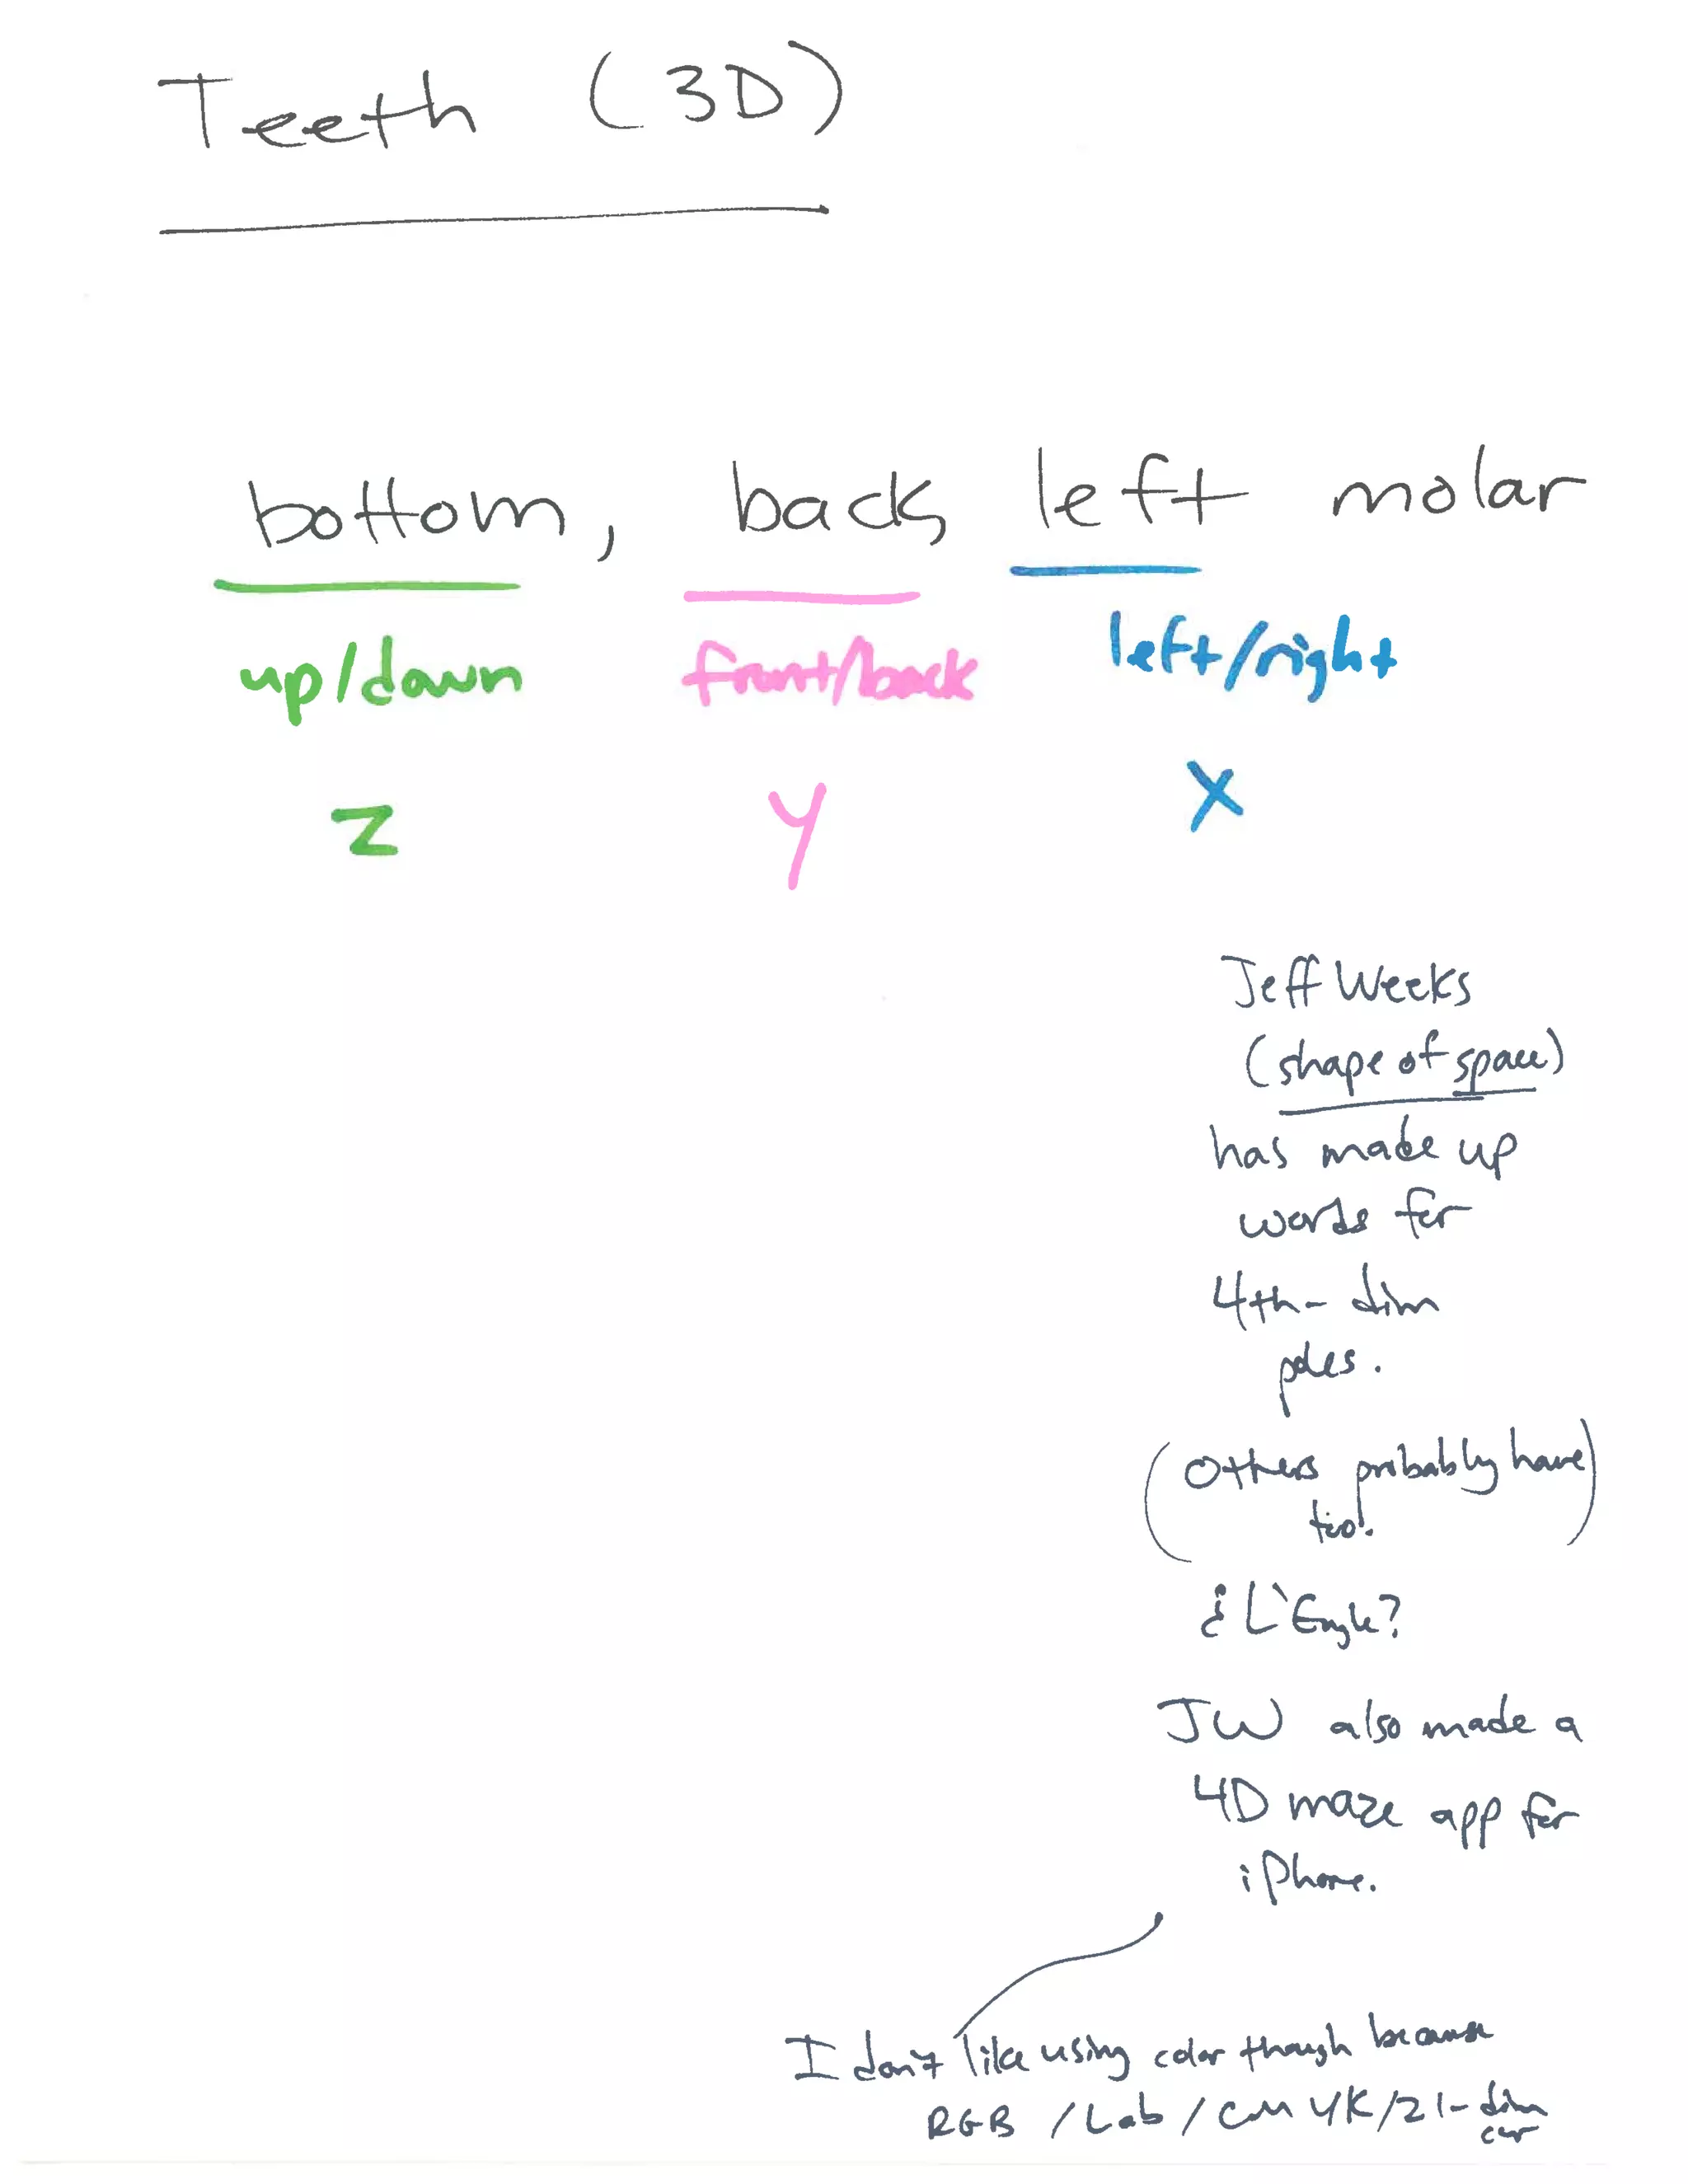 Teeth (3D)
bottom, back left molar
up/down front/back left/right
z y x
Jeff Weeks
(shape of space)
has made up
words for
4th-dim
poles.
(Others probably have)
too.
¿L'Engle?
JW also made a
4D maze app for
iPhone.
I don't like using color though because
RGB / Lab / CMYK/21-dim